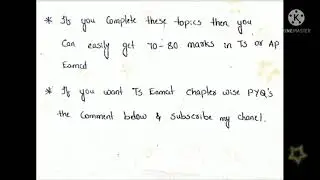 * If you Complete these topics then you
Can easily get 70-80 marks in Ts or AP
Eamcet
* If you want Ts Eamcet chapter wise PYQ's
the Comment below & subscribe my chanel.
KINEMASTER